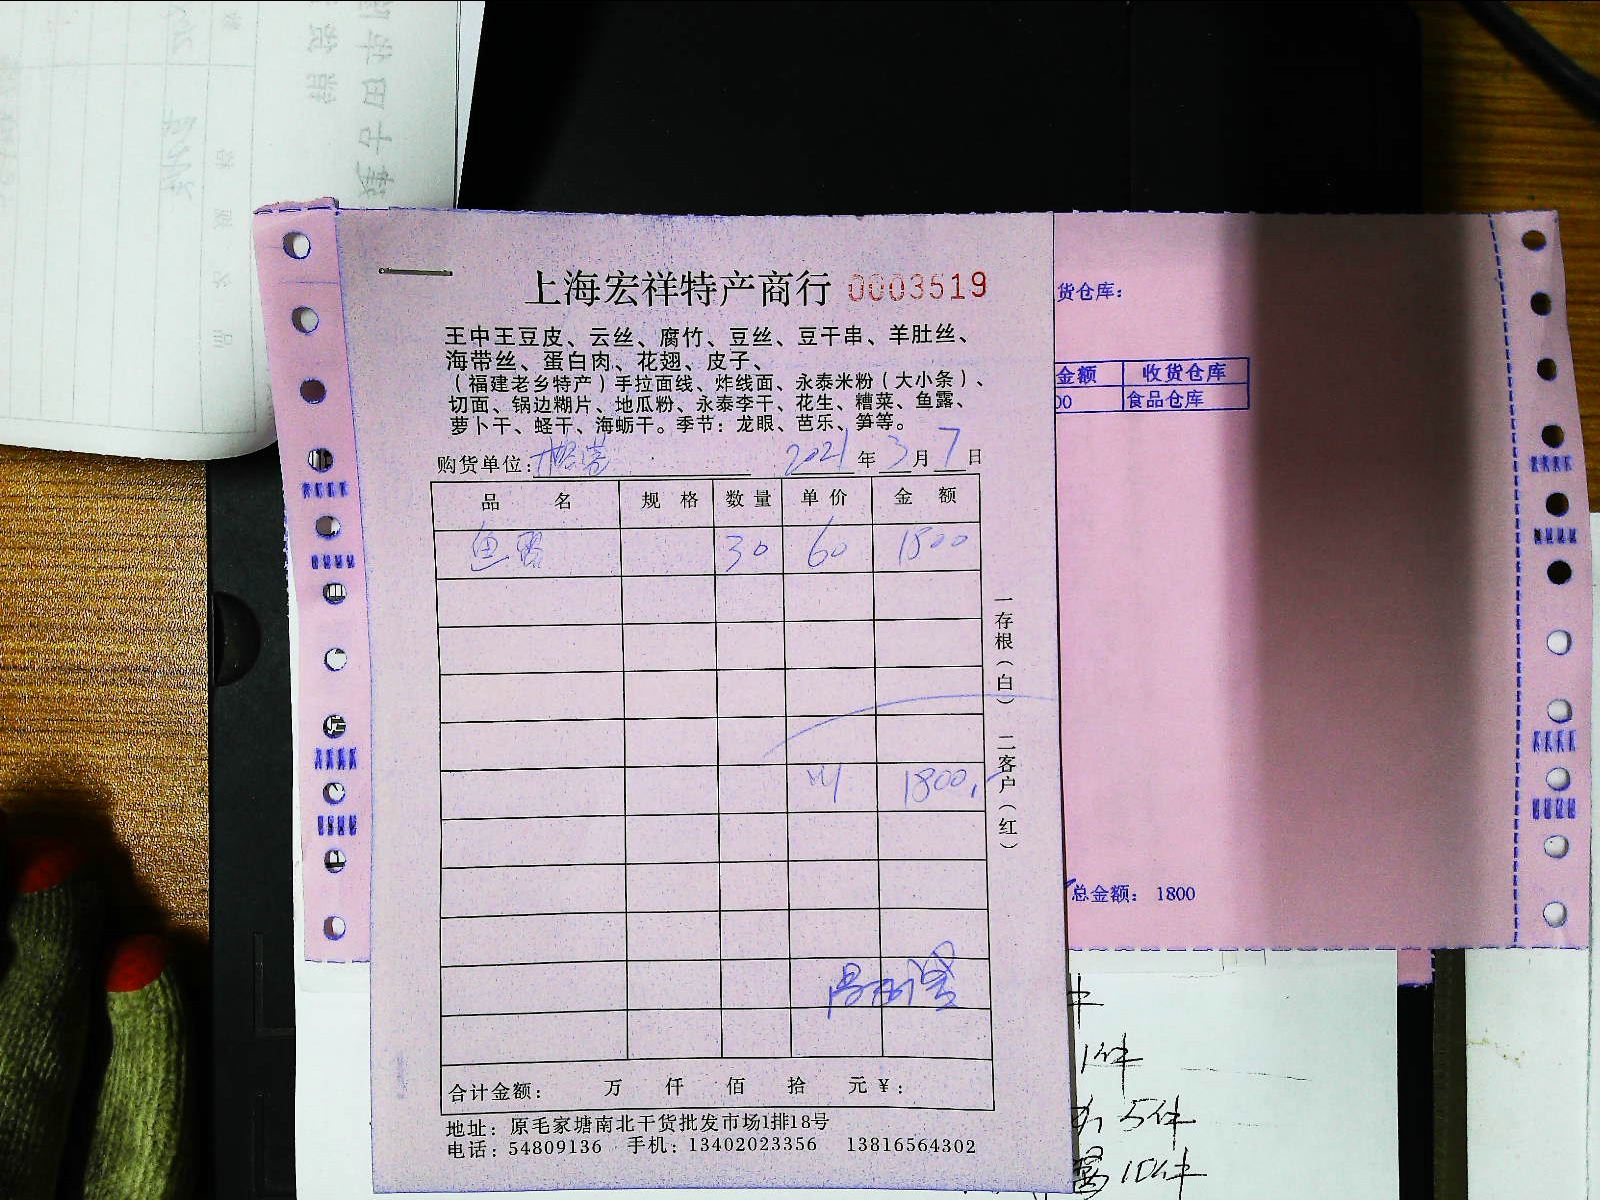 上海宏祥特产商行 0003519
王中王豆皮、云丝、腐竹、豆丝、豆干串、羊肚丝、
海带丝、蛋白肉、花翅、皮子、
（福建老乡特产）手拉面线、炸线面、永泰米粉（大小条）、
切面、锅边糊片、地瓜粉、永泰李干、花生、糟菜、鱼露、
萝卜干、蛏干、海蛎干。季节：龙眼、芭乐、笋等。
购货单位： 2021年3月7日
品名 规格 数量 单价 金额
鱼露 30 60 1800
1800
合计金额： 万 仟 佰 拾 元 ¥：
地址：原毛家塘南北干货批发市场1排18号
电话：54809136 手机：13402023356 13816564302
一存根（白） 二客户（红）
货仓库：
金额 收货仓库
00 食品仓库
总金额： 1800
1件
5件
10件